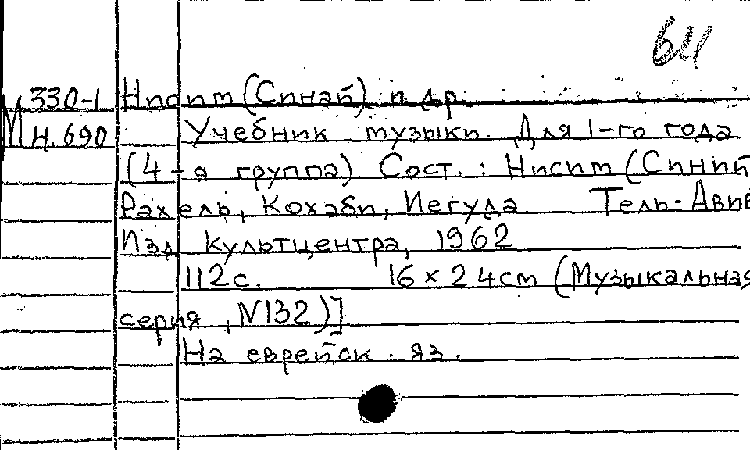 611
М 330-1 Нисим (Синай) и др.
Н.690 Учебник музыки. Для 1-го года
(4-я группа) Сост.: Нисим (Синай
Рахель, Кохаби, Иегуда Тель-Авив
Изд культцентра, 1962
112 с. 16 × 24 см (Музыкальная
серия, N132)]
На еврейск. яз.